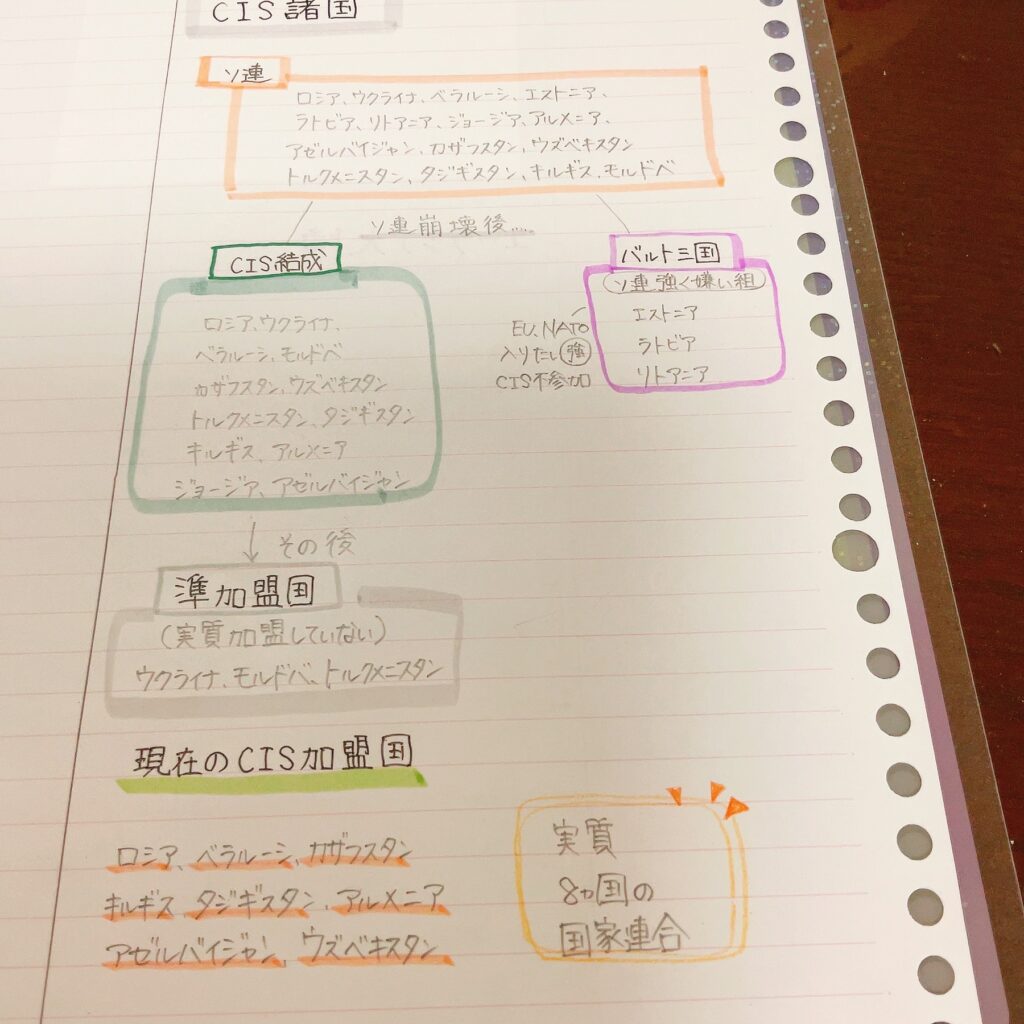 CIS諸国
ソ連
ロシア、ウクライナ、ベラルーシ、エストニア、
ラトビア、リトアニア、ジョージア、アルメニア、
アゼルバイジャン、カザフスタン、ウズベキスタン
トルクメニスタン、タジギスタン、キルギス、モルドベ
ソ連崩壊後....
CIS結成
ロシア、ウクライナ、
ベラルーシ、モルドベ
カザフスタン、ウズベキスタン
トルクメニスタン、タジギスタン
キルギス、アルメニア
ジョージア、アゼルバイジャン
バルト三国
ソ連強く嫌い組
エストニア
ラトビア
リトアニア
EU、NATO
入りたし強
CIS不参加
その後
準加盟国
(実質加盟していない)
ウクライナ、モルドベ、トルクメニスタン
現在のCIS加盟国
ロシア、ベラルーシ、カザフスタン
キルギス、タジギスタン、アルメニア
アゼルバイジャン、ウズベキスタン
実質
8ヵ国の
国家連合